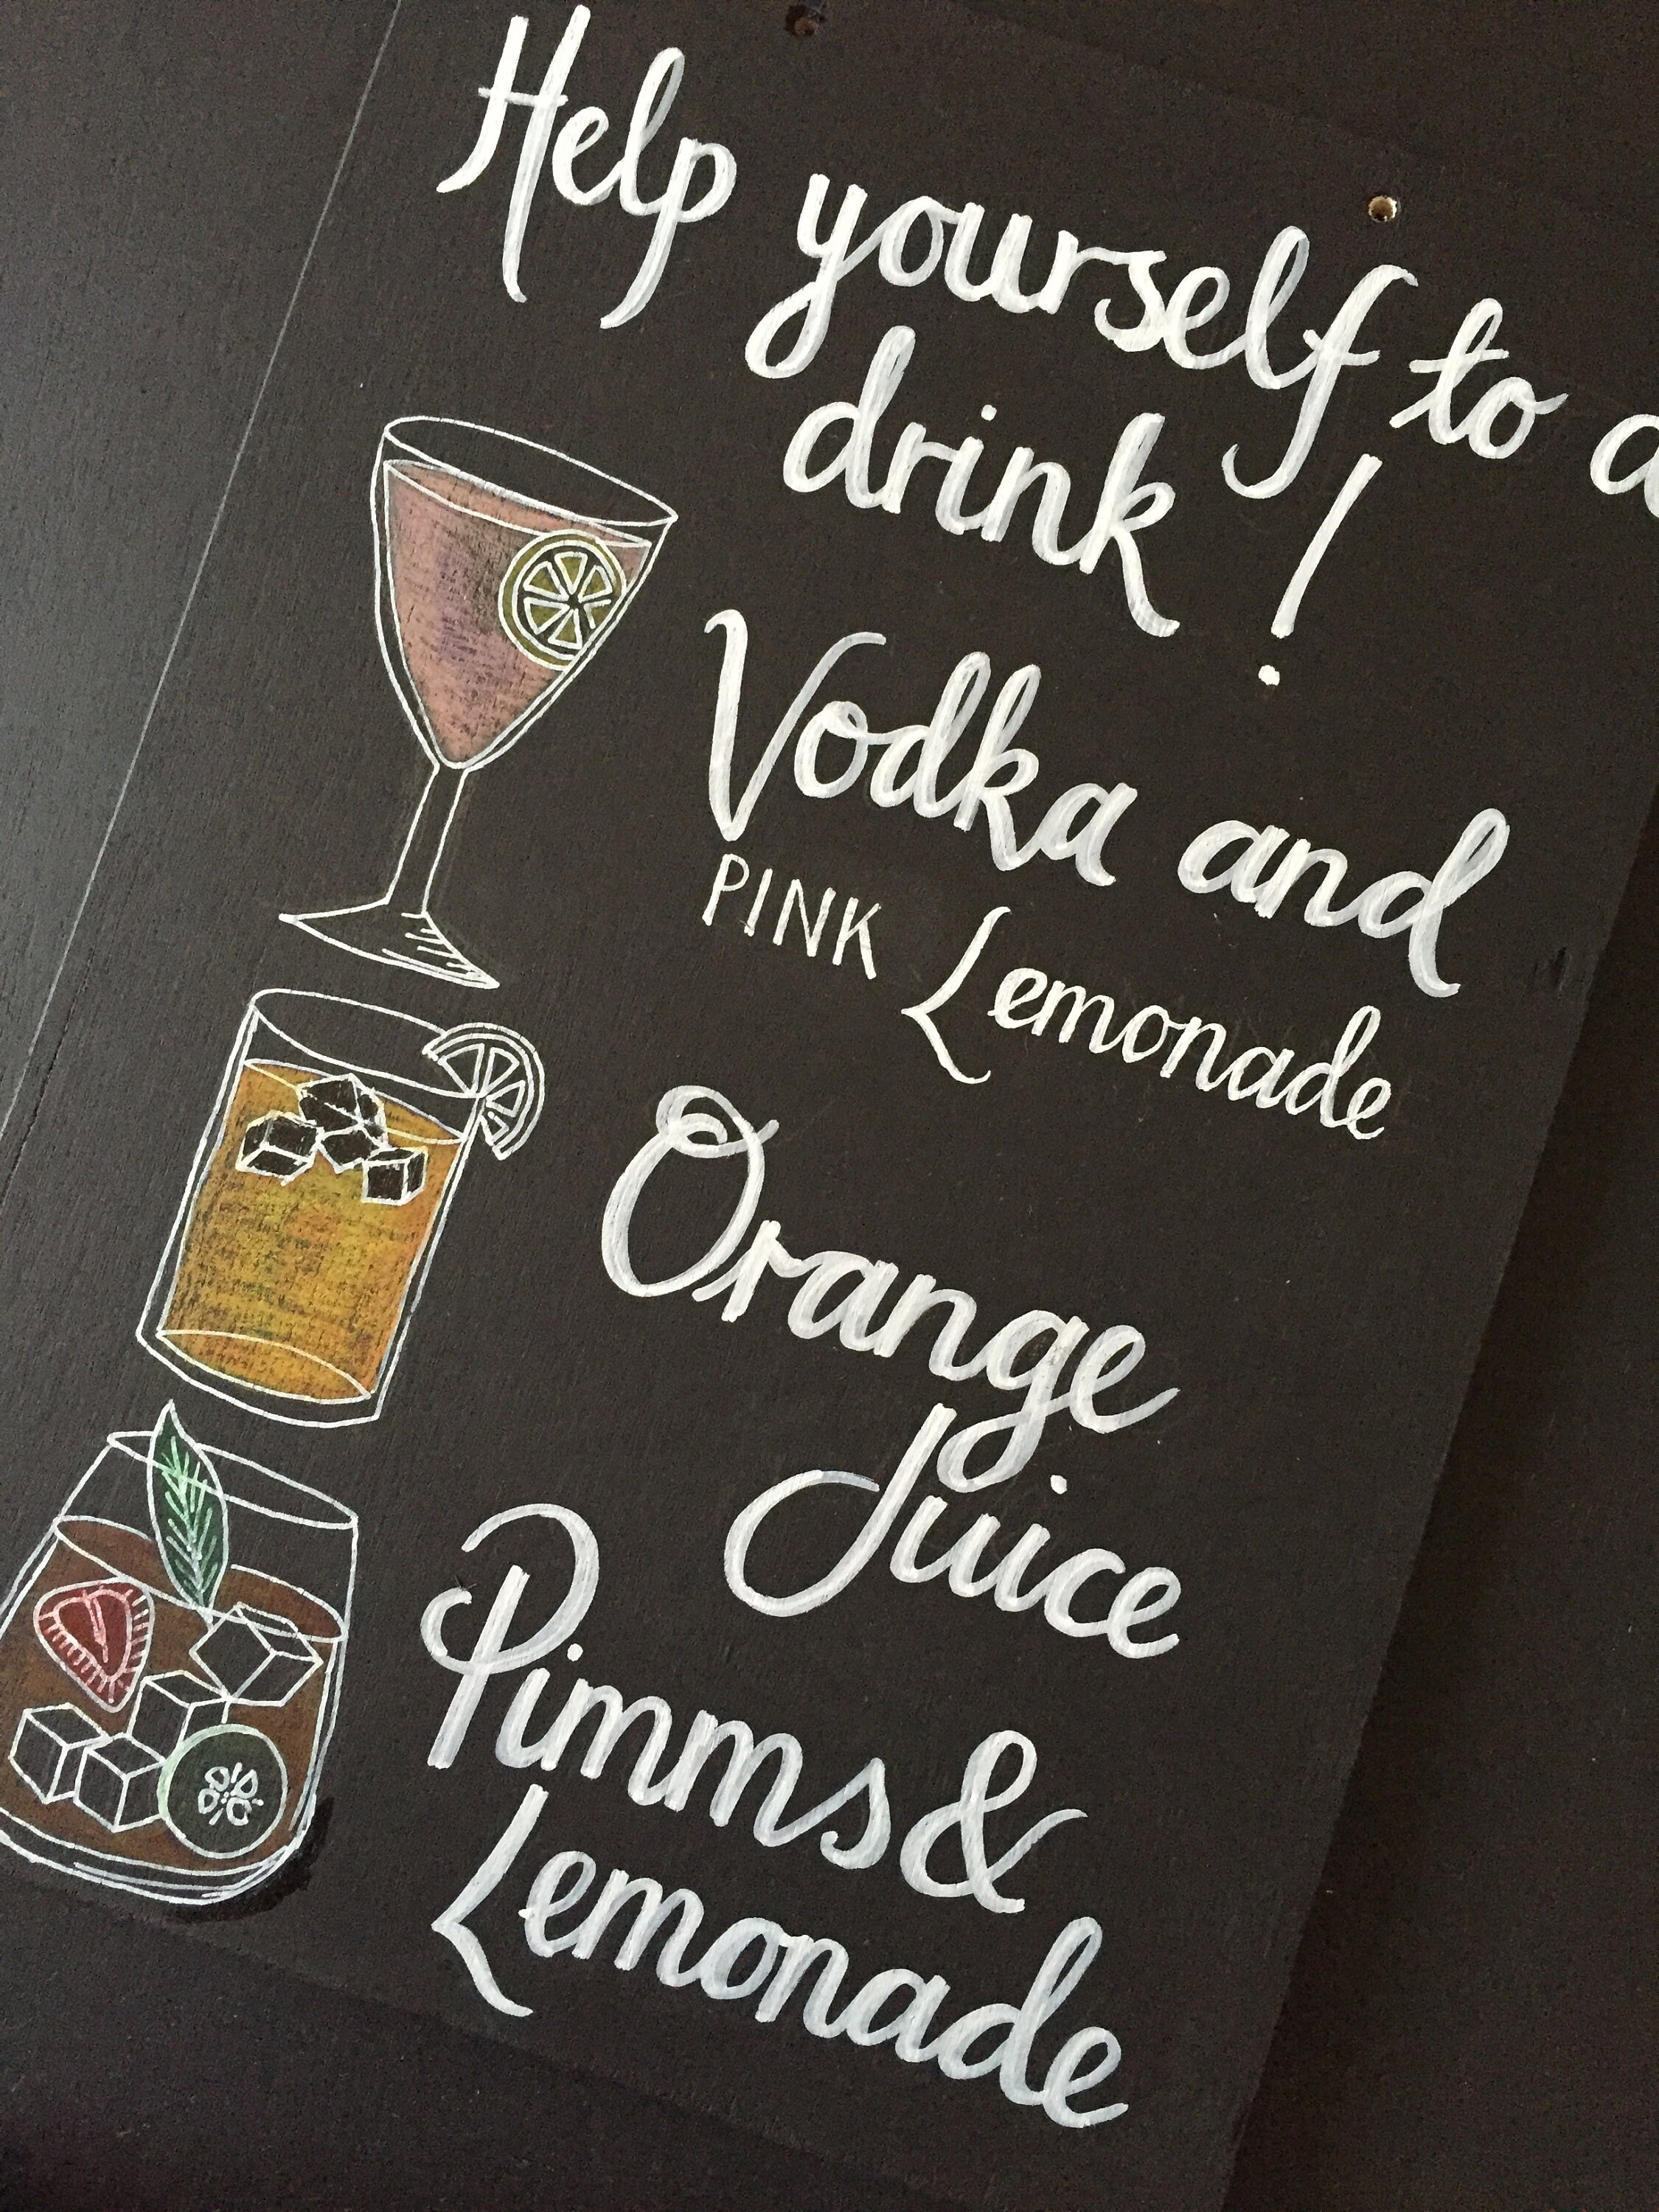 Help yourself to a
drink!
Vodka and
PINK Lemonade
Orange
Juice
Pimms &
Lemonade